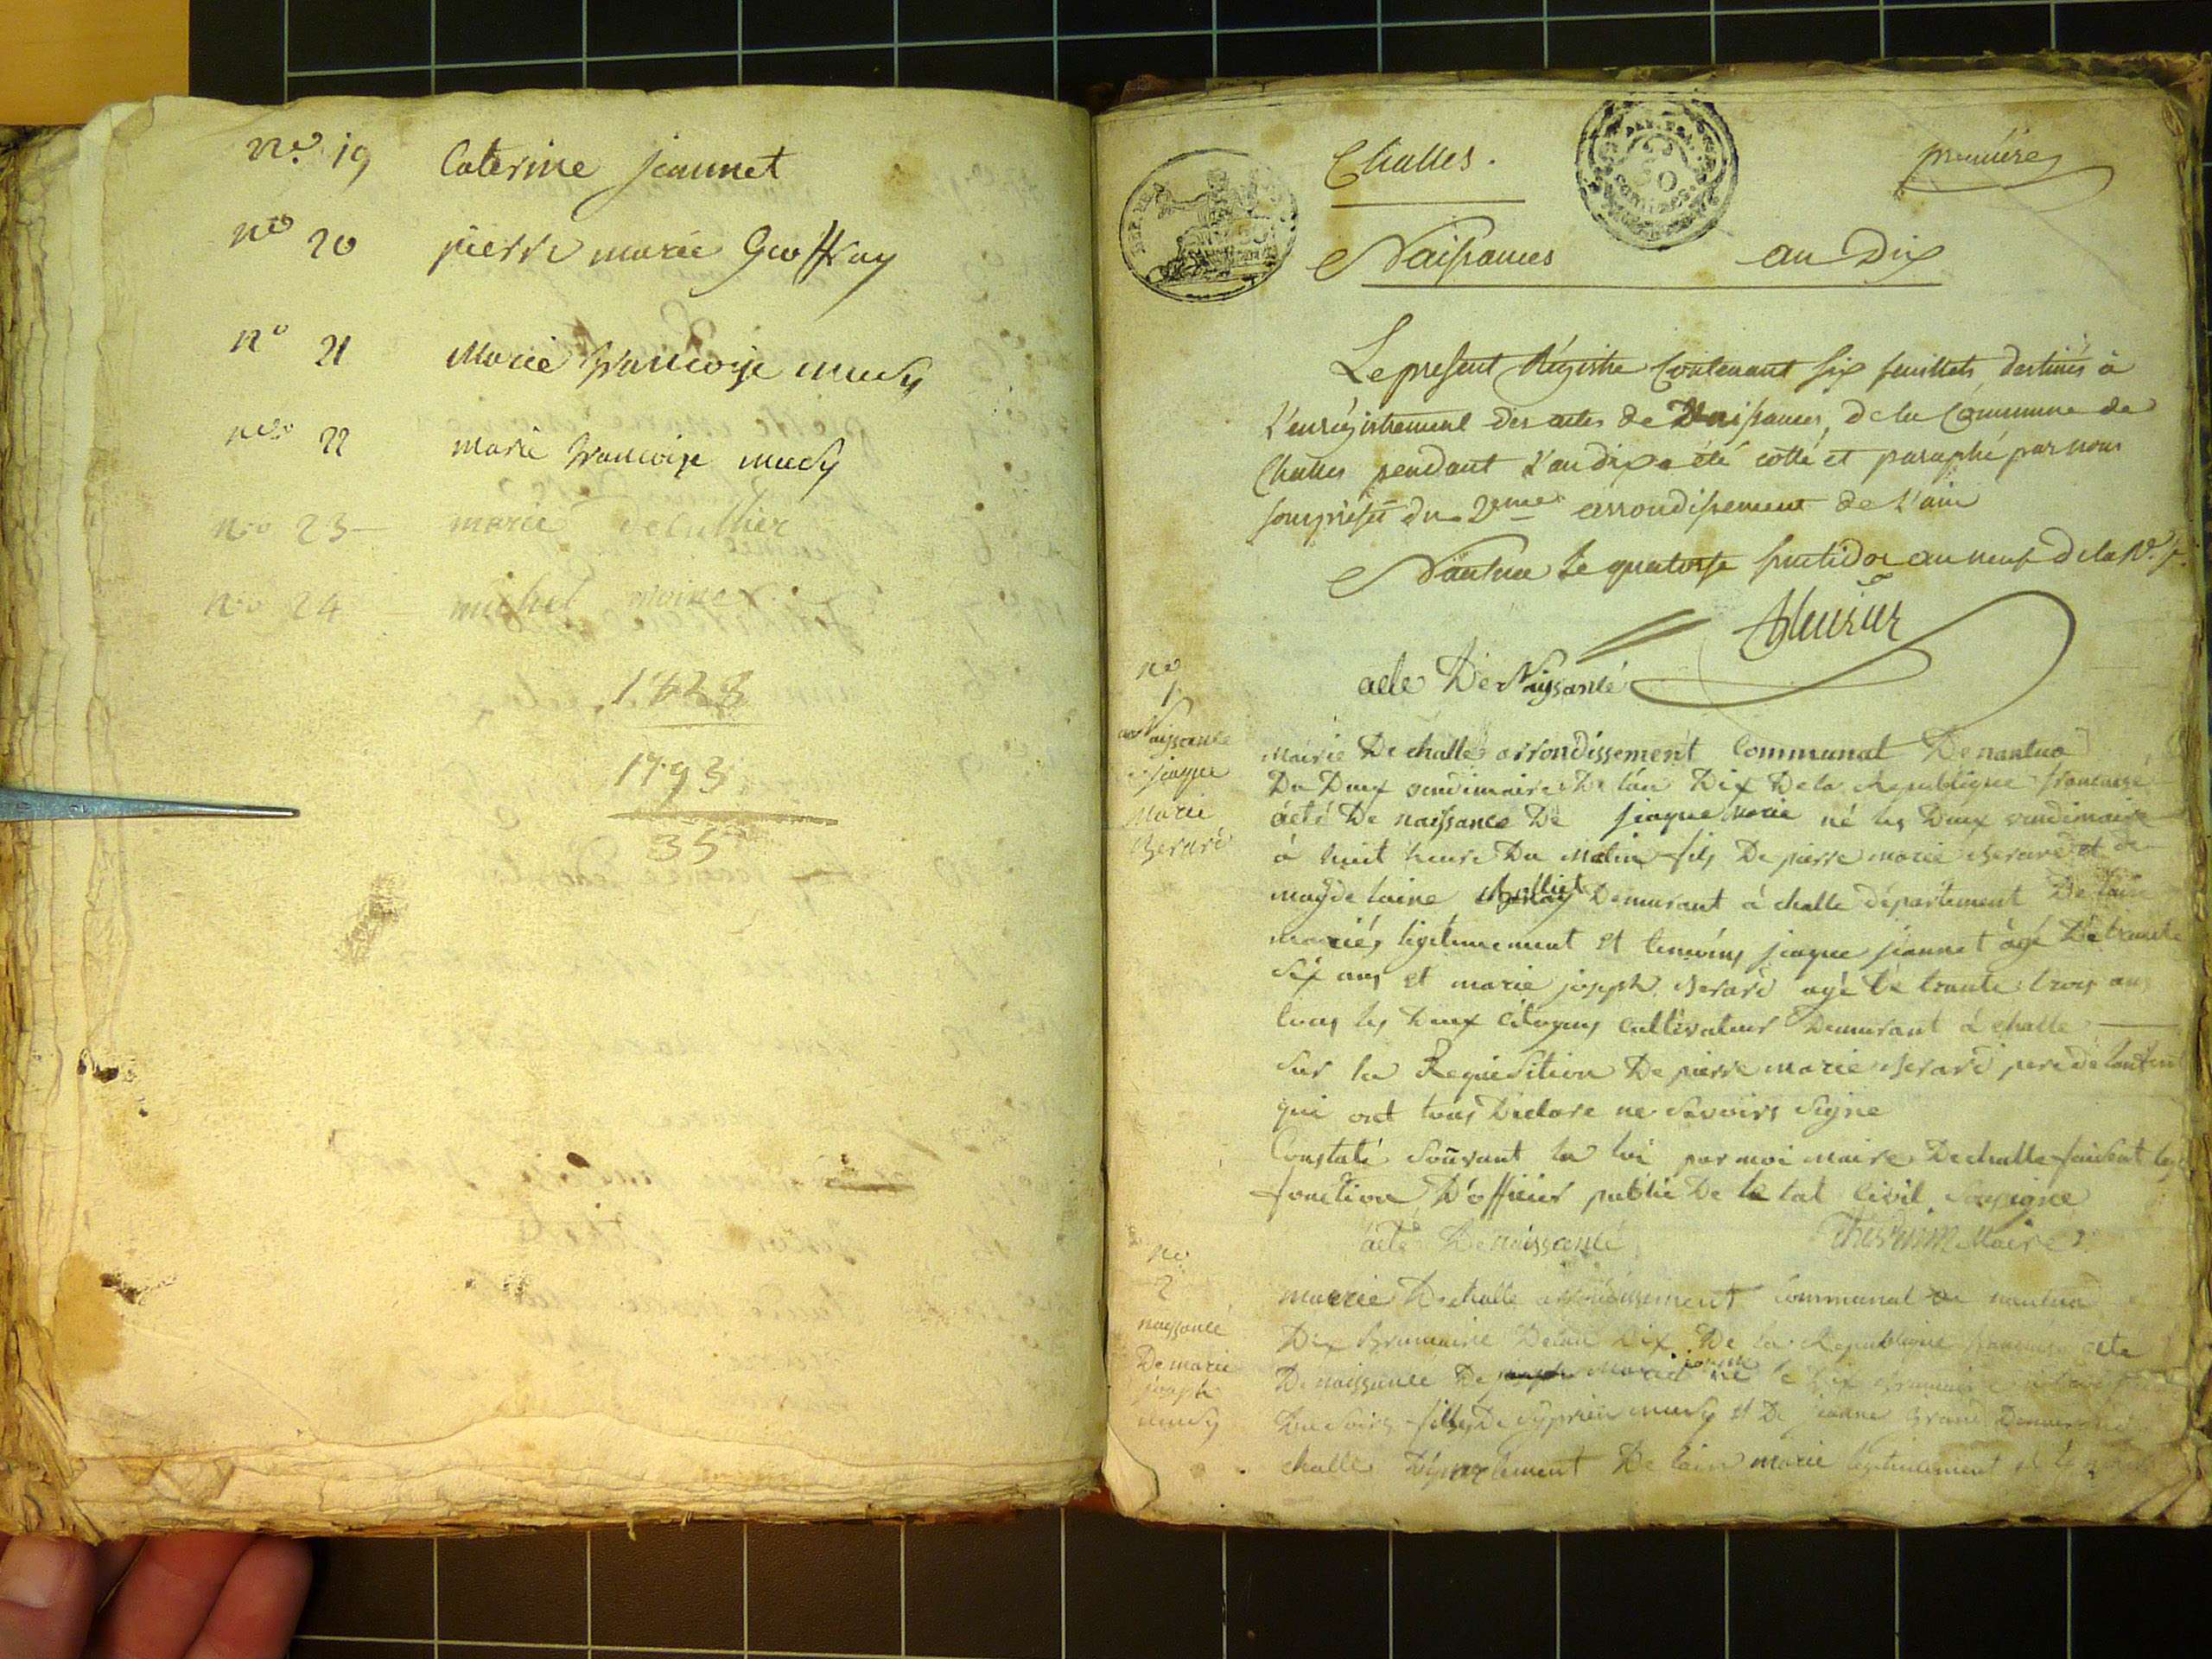 no. 19 Caterine jeannet
no 20 pierre marie Geoffray
no 21 Marie francoise mudy
no 22 marie francoise mudy
no 23 — marie
no 24 — michel moine
1828
1793
35
Challes. première
50
Naissances an Dix
Le present Régistre Contenant six feuillets, destinés à
L'enrégistrement des actes de Naissances, de la Commune de
Challes pendant l'an dix a été cotté et paraphé par nous
sousprefet du 2eme arrondissement de l'ain
Nantua le quatorse fructidor an neuf de la R. f.
no
1
Naissance
jaque
Marie
Berard
acte De Naissance
Mairie De challe arrondissement Communal De nantua
Du Deux vendimaire De l'an Dix De la Republique francaise
acte De naissance De jaque Marie né les Deux vendimaire
à huit heure Du Matin fils De pierre marie Berard et de
magdelaine Demurant à challe département De lain
mariés legitimement et temoins jaque jeannet agé De trante
six ans et marie joseph Berard agé De trante trois ans
tous les Deux citoyens cultivateur Demurant à challe —
sur la Requisition De pierre marie Berard pere de l'anfant
qui ont tous Déclare ne savoirs signe
Constaté souvant la loi par moi maire De challe faisant les
fonction D'officier public De le tat Civil sousigne
Maire
no
2
naissance
De marie
joseph
mudy
acte De naissance
mairie De challe arrondissement communal de nantua
Dix Brumaire De l'an Dix De la Republique francaise acte
De naissance De Marie joseph né le Dix Brumaire
Du soirs fille De cyprien mudy et De jeanne Grand Demurant
challe Département De lain marié legitimement et